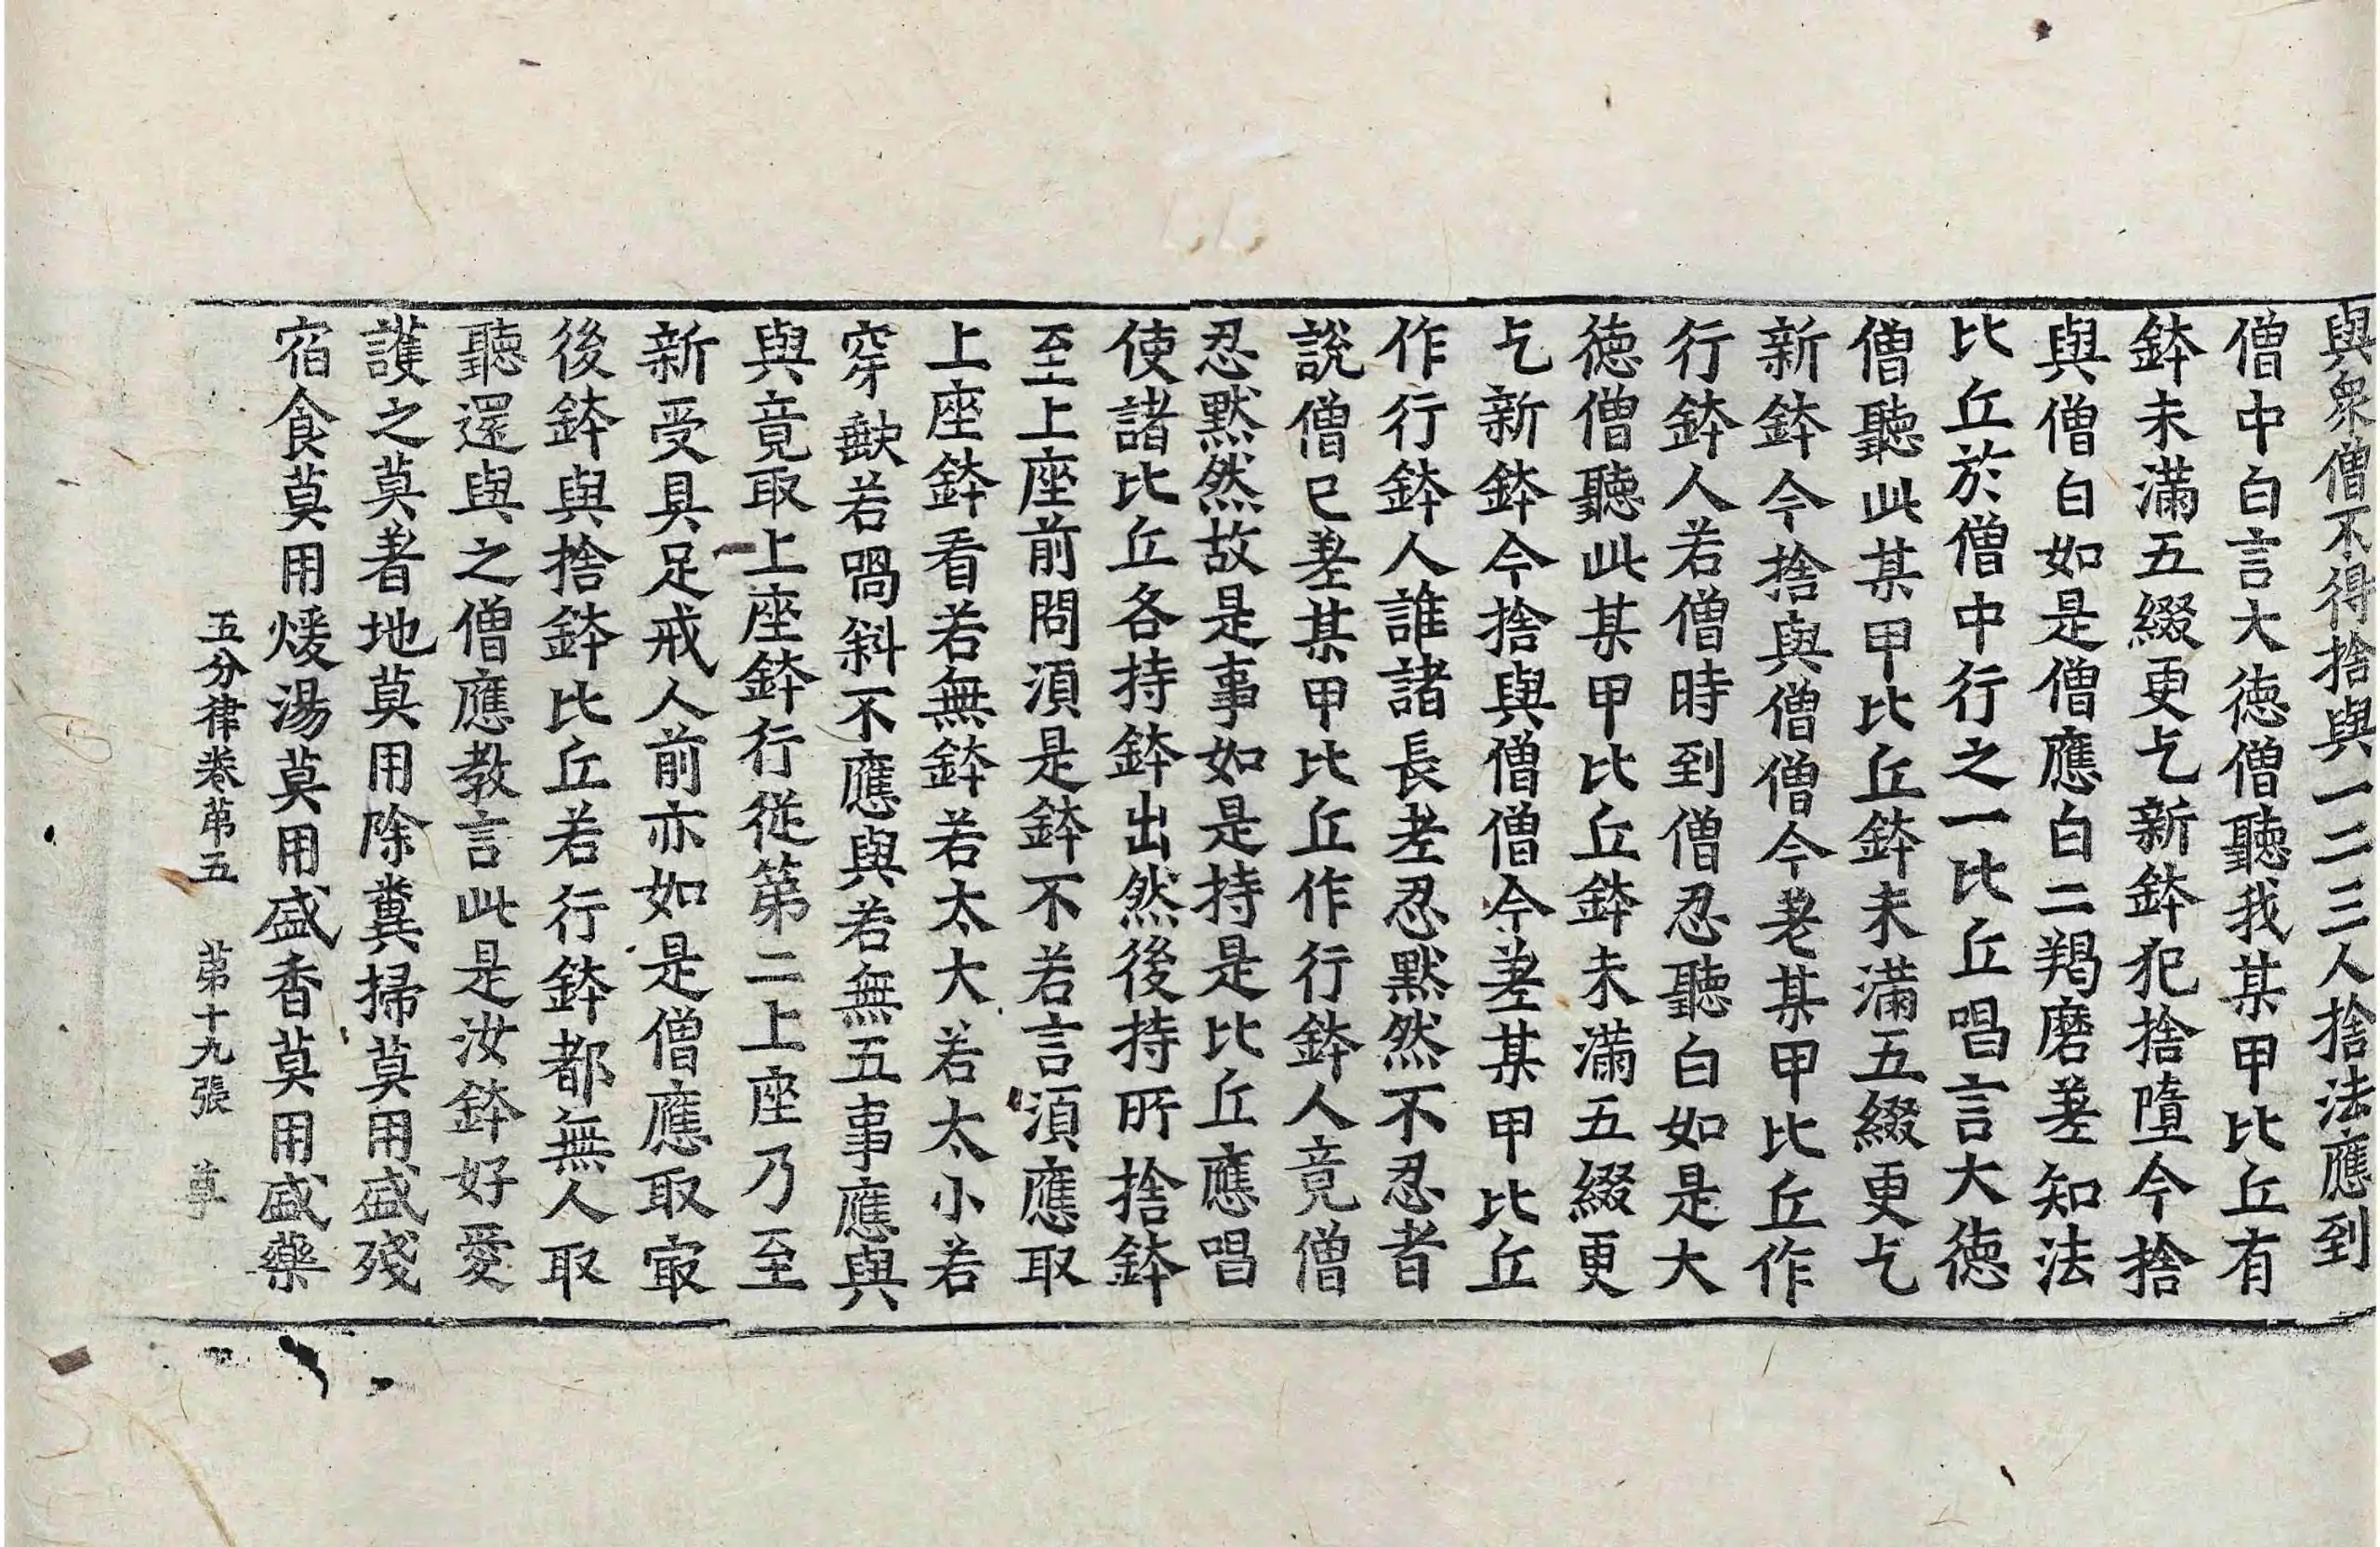 與衆僧不得捨與一二三人捨法應到
僧中白言大徳僧聽我某甲比丘有
鉢未滿五綴更乞新鉢犯捨墮今捨
與僧白如是僧應白二羯磨差知法
比丘於僧中行之一比丘唱言大徳
僧聽此某甲比丘鉢未滿五綴更乞
新鉢今捨與僧僧今差某甲比丘作
行鉢人若僧時到僧忍聽白如是大
徳僧聽此某甲比丘鉢未滿五綴更
乞新鉢今捨與僧僧今差某甲比丘
作行鉢人誰諸長老忍黙然不忍者
說僧已差某甲比丘作行鉢人竟僧
忍黙然故是事如是持是比丘應唱
使諸比丘各持鉢出然後持所捨鉢
至上座前問湏是鉢不若言湏應取
上座鉢看若無鉢若太大若太小若
穿缺若喎斜不應與若無五事應與
與竟取上座鉢行從第二上座乃至
新受具足戒人前亦如是僧應取冣
後鉢與捨鉢比丘若行鉢都無人取
聽還與之僧應教言此是汝鉢好愛
護之莫著地莫用除糞掃莫用盛殘
宿食莫用煖湯莫用盛香莫用盛藥
五分律卷苐五 苐十九張 尊